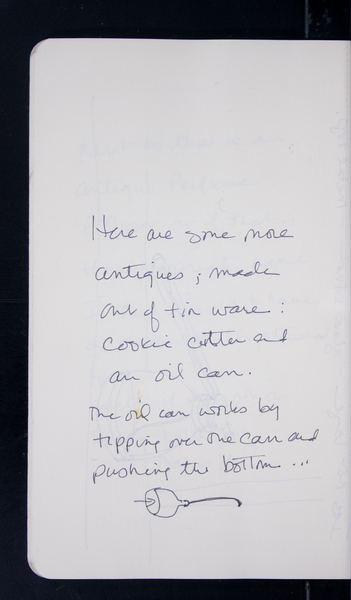 Here are some more
antiques; made
out of tin ware:
cookie cutter and
an oil can.
The oil can works by
tipping over the can and
pushing the bottom...